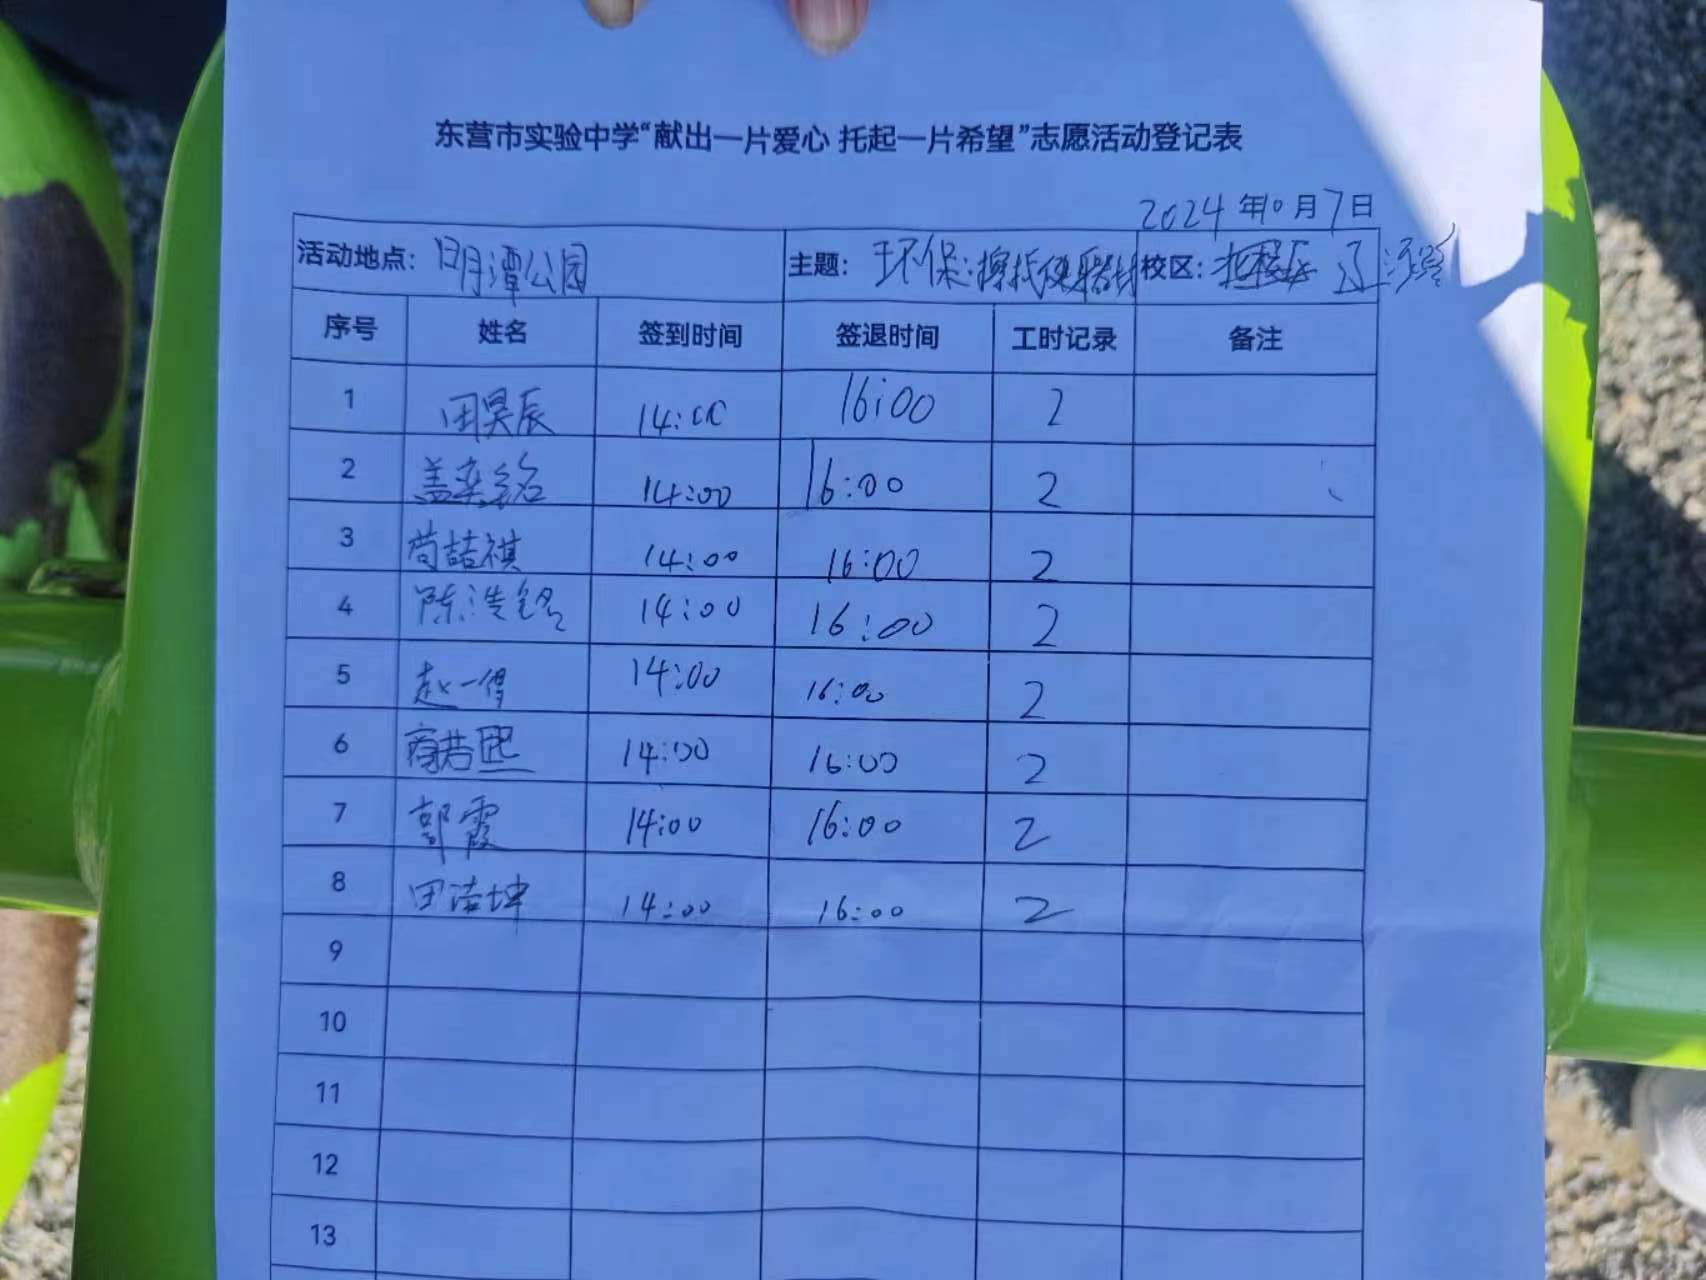 东营市实验中学“献出一片爱心 托起一片希望”志愿活动登记表
2024年10月7日
活动地点：明月潭公园 主题：环保 校区：辽河
序号 姓名 签到时间 签退时间 工时记录 备注
1 田昊辰 14:00 16:00 2
2 盖奕铭 14:00 16:00 2
3 尚喆祺 14:00 16:00 2
4 陈浩铭 14:00 16:00 2
5 赵一 14:00 16:00 2
6 商若熙 14:00 16:00 2
7 郭霞 14:00 16:00 2
8 田洁坤 14:00 16:00 2
9
10
11
12
13